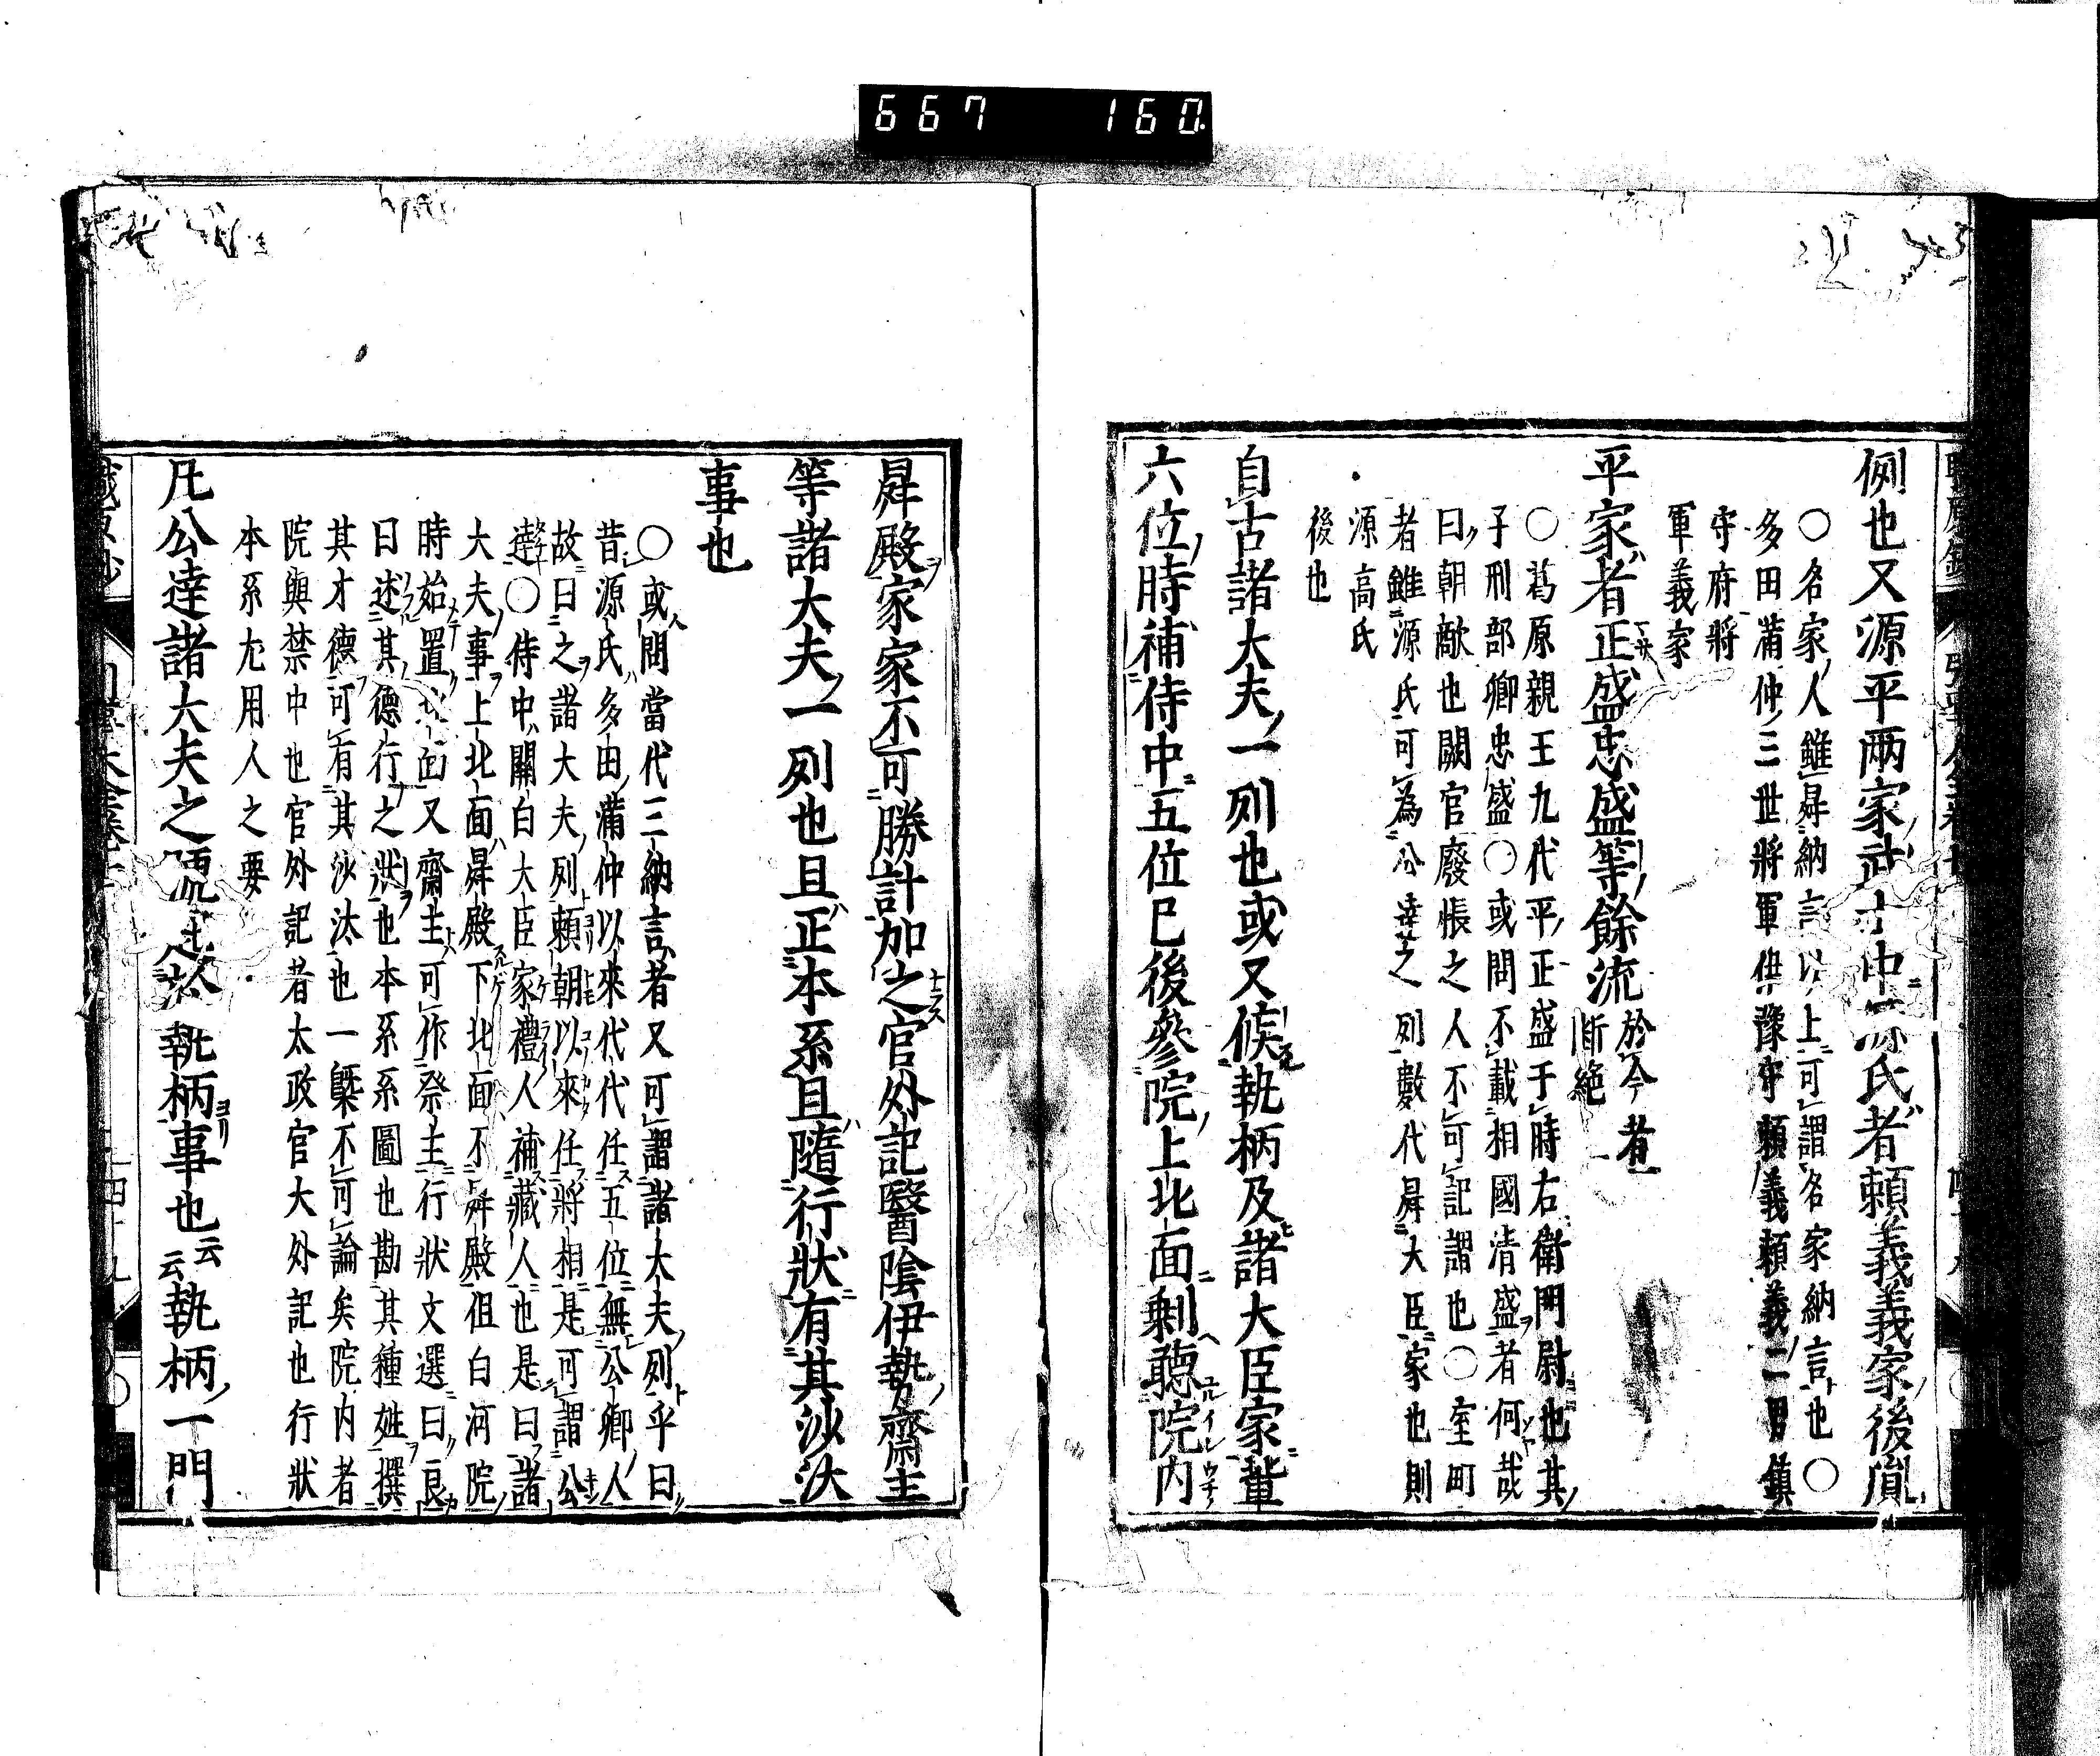 667 160
例也又源平兩家武士中源氏者頼義義家後胤
〇名家人雖昇納言以上可謂名家納言也〇
多田滿仲三世將軍伊豫守頼義頼義二男鎮
守府將
軍義家
平家者正盛忠盛等餘流於今者断絶
〇葛原親王九代平正盛于時右衛門尉也其
子刑部卿忠盛〇或問不載相國清盛者何哉
曰朝敵也闕官廢帳之人不可記謂也〇室町
者雖源氏可為公達之列數代昇大臣家也則
源高氏
後也
自古諸大夫一列也或又候執柄及諸大臣家輩
六位時補侍中五位已後參院上北面剰聴院内
昇殿家家不可勝計加之官外記醫陰伊勢齋主
等諸大夫一列也且正本系且隨行狀有其沙汰
事也
〇或問當代三納言者又可謂諸大夫列乎曰
昔源氏多田滿仲以來代代任五位無公卿人
故曰之諸大夫列頼朝以來任將相是可謂公
達〇侍中關白大臣家禮人補藏人也是曰諸
大夫事上北面昇殿下北面不昇殿但白河院
時始置北面又齋主可作祭主行狀文選曰良
曰述其德行之狀也本系系圖也勘其種姓撰
其才德可有其沙汰也一槩不可論矣院内者
院與禁中也官外記者太政官大外記也行狀
本系尤用人之要
凡公達諸大夫之號起於執柄事也云云執柄一門